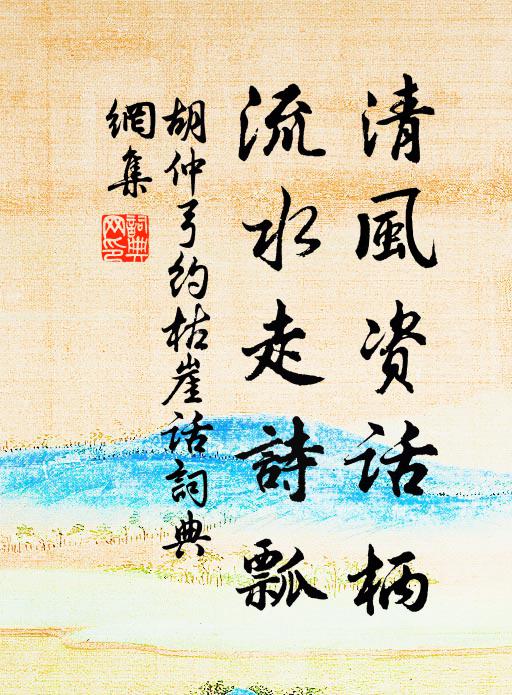 清風資話柄
流水走詩瓢
胡仲弓約枯崖話詞典
網集
詞典網印